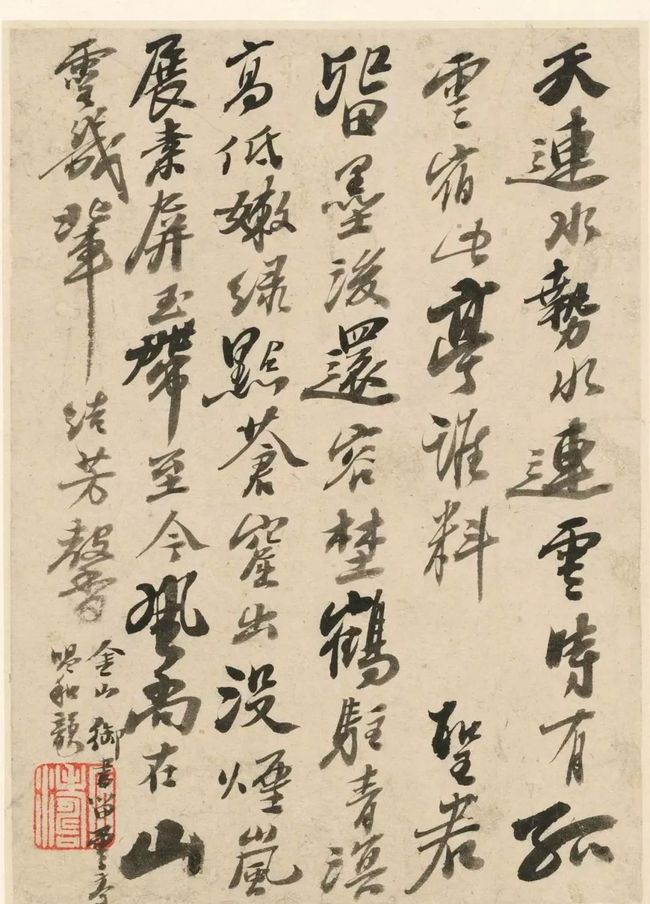 天連水勢水連雲時有孤
雲宿此亭誰料 聖君
留墨後還容埜鶴駐青溟
高低嫩綠點蒼崖出沒煙嵐
展素屏玉帶至今風尚在山
靈幾輩結芳馨
金山御書留雲亭
唱和韻